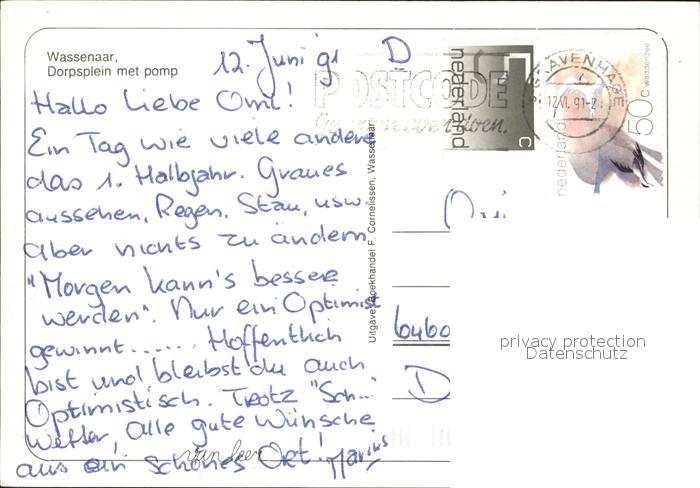 Wassenaar,
Dorpsplein met pomp
12. Juni '91
D
Hallo liebe Omi!
Ein Tag wie viele andere
das 1. Halbjahr. Graues
aussehen, Regen, Stau, usw.
aber nichts zu ändern
"Morgen kann's besser
werden". Nur ein Optimist
gewinnt...... Hoffentlich
bist und bleibst du auch
Optimistisch. Trotz "Sch..."
Wetter, alle gute Wünsche
aus ein schönes Ort! Marius
van Leer
Uitgave: Boekhandel F. Cornelissen, Wassenaar
POSTCODE
nederland
c
'S GRAVENHAGE
12.VI.91
nederland
50 c
waddenzee
6460
D
privacy protection
Datenschutz